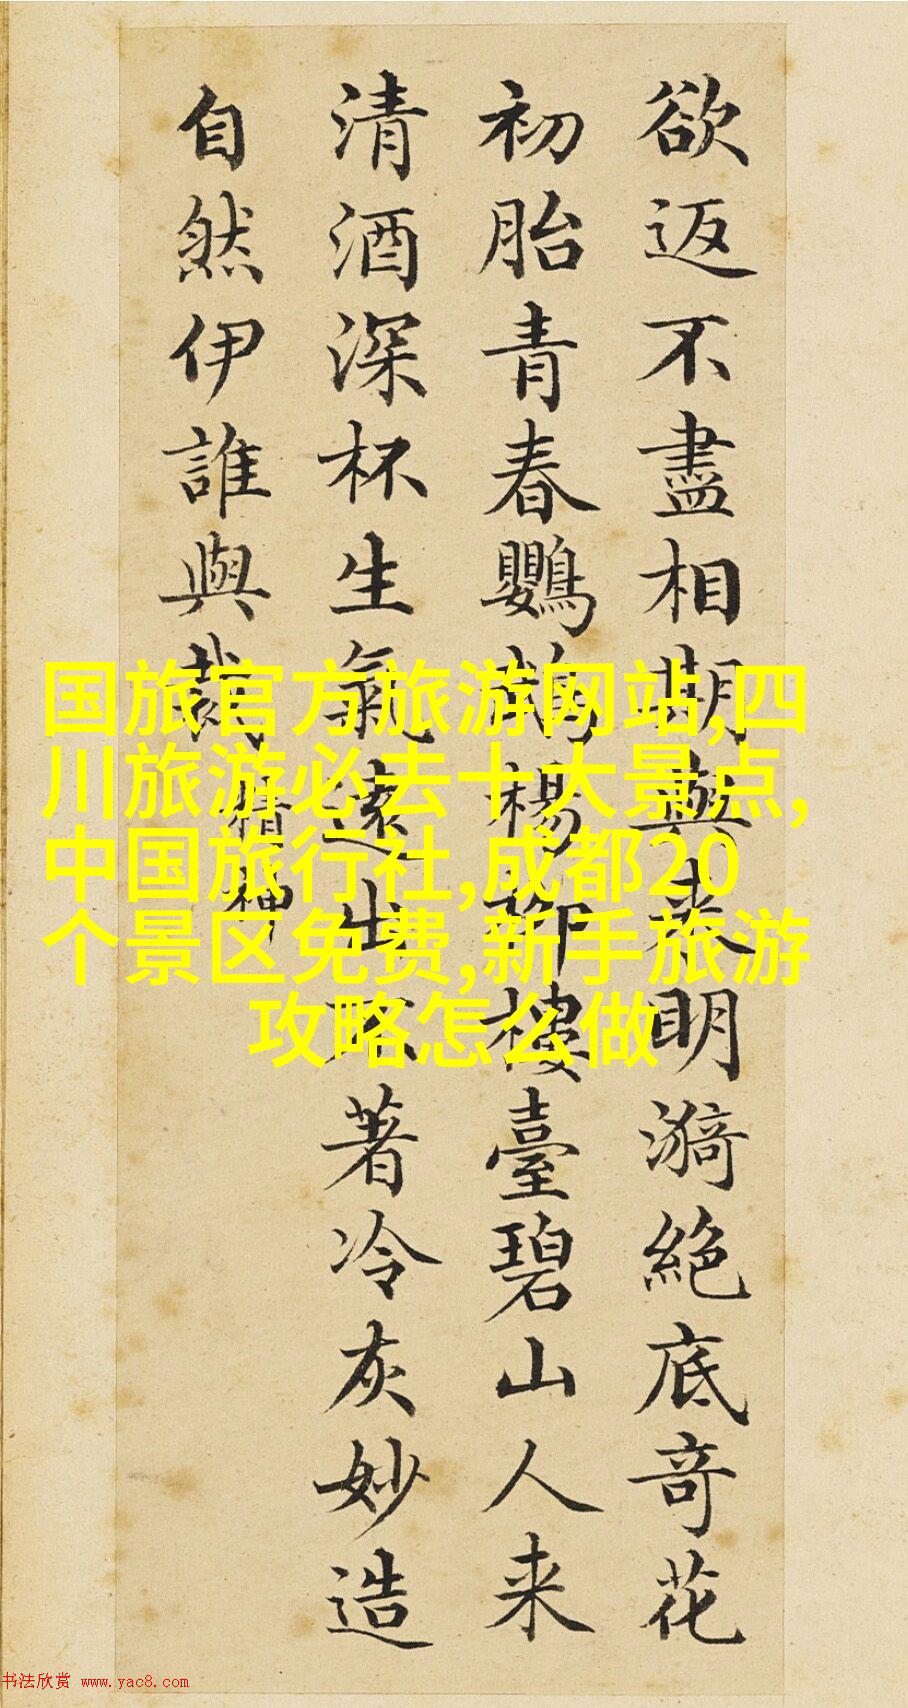 欲返不盡相期與来明漪絕底奇花
初胎青春鸚鵡楊柳樓臺碧山人来
清酒深杯生氣遠出不著冷灰妙造
自然伊誰與裁
精神
国旅官方旅游网站,四
川旅游必去十大景点,
中国旅行社,成都20
个景区免费,新手旅游
攻略怎么做
书法欣赏 www.yac8.com